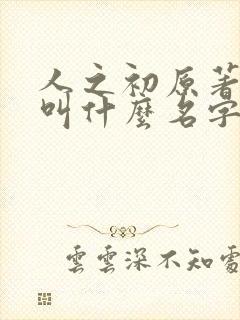 人之初原著
叫什麼名字
雲雲深不知處